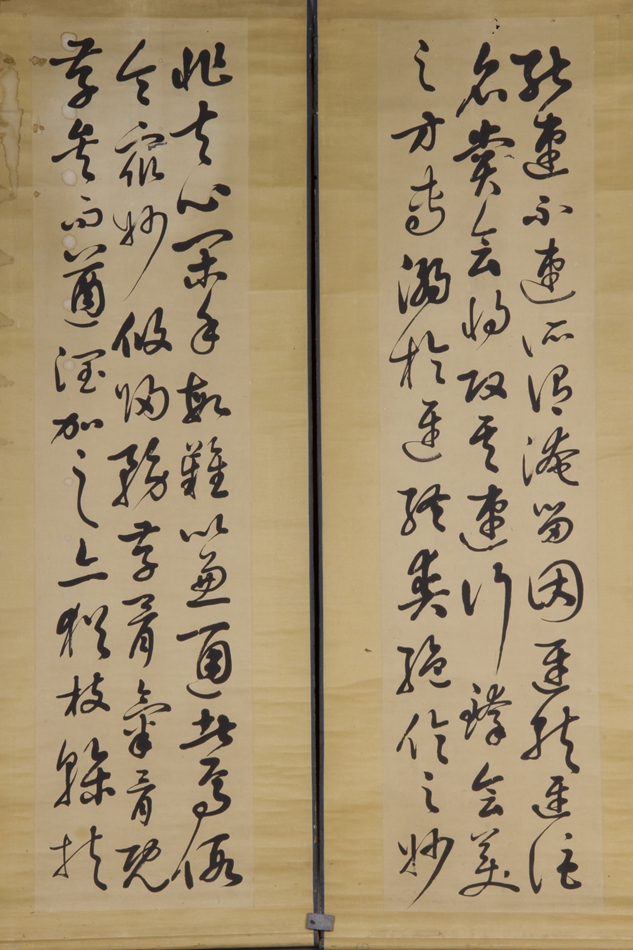 能速不速所謂淹留因遲就遲詎
名賞會將反其速行臻會美
之方專溺於遲終爽絕倫之妙
非夫心閑手敏難以兼通者焉假
令眾妙攸歸務存骨氣骨既
存矣而遒潤加之亦猶枝幹扶